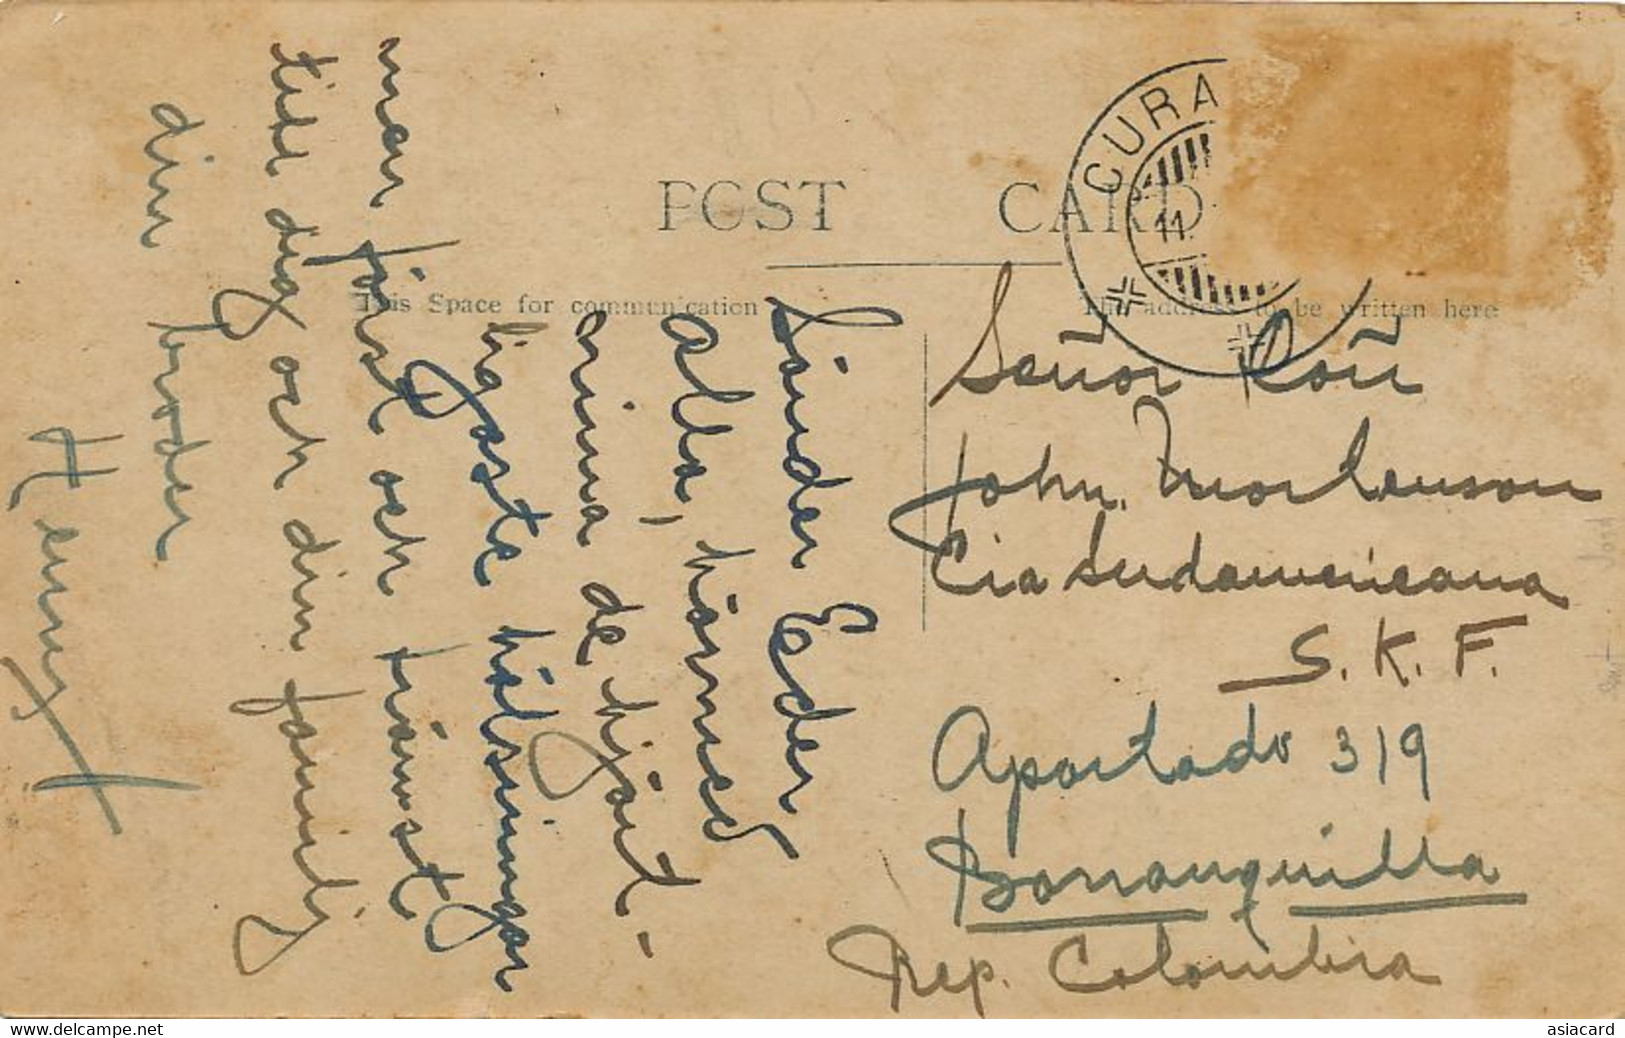 POST CARD
This Space for communication
The address to be written here
CURA
11.
Sänder Eder
alla, härmed
mina de hjärt-
ligaste hälsningar
men först och främst
till dig och din familj
din broder
Henry
Señor Don
John. Mortenson
Cia Sudamericana
S. K. F.
Apartado 319
Barranquilla
Rep. Colombia
asiacard
delcampe.net